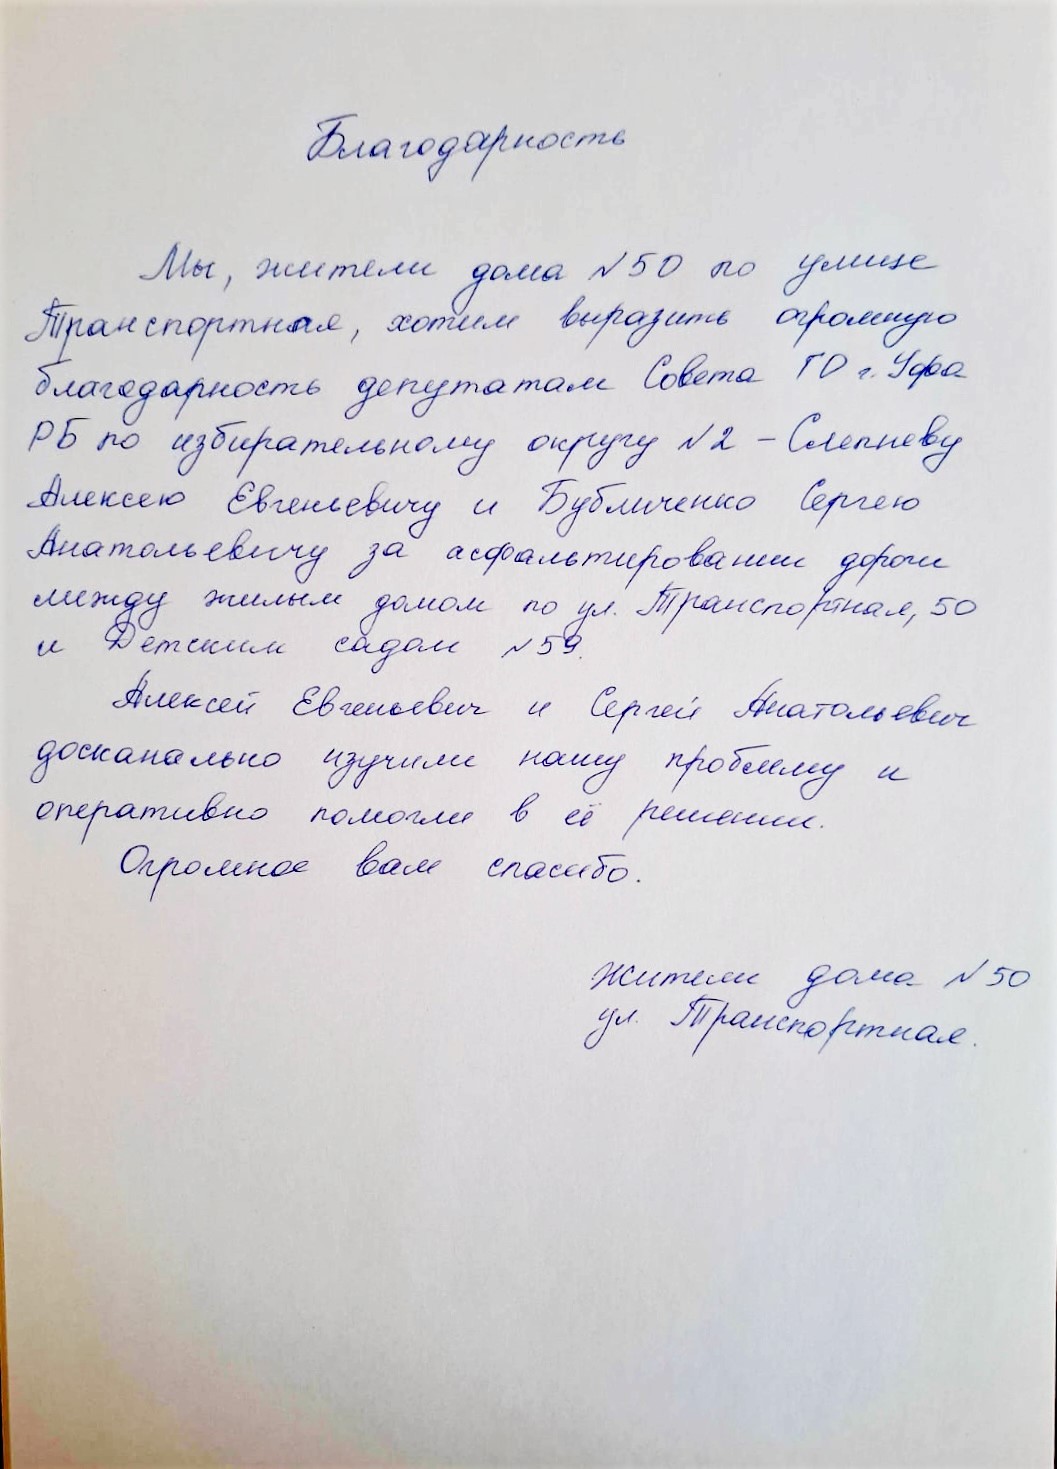 Благодарность
Мы, жители дома №50 по улице
Транспортная, хотим выразить огромную
благодарность депутатам Совета ГО г. Уфа
РБ по избирательному округу №2 – Слепневу
Алексею Евгеньевичу и Бубличенко Сергею
Анатольевичу за асфальтировании дороги
между жилым домом по ул. Транспортная, 50
и Детским садом №59.
Алексей Евгеньевич и Сергей Анатольевич
досканально изучили нашу проблему и
оперативно помогли в её решении.
Огромное вам спасибо.
Жители дома №50
ул. Транспортная.